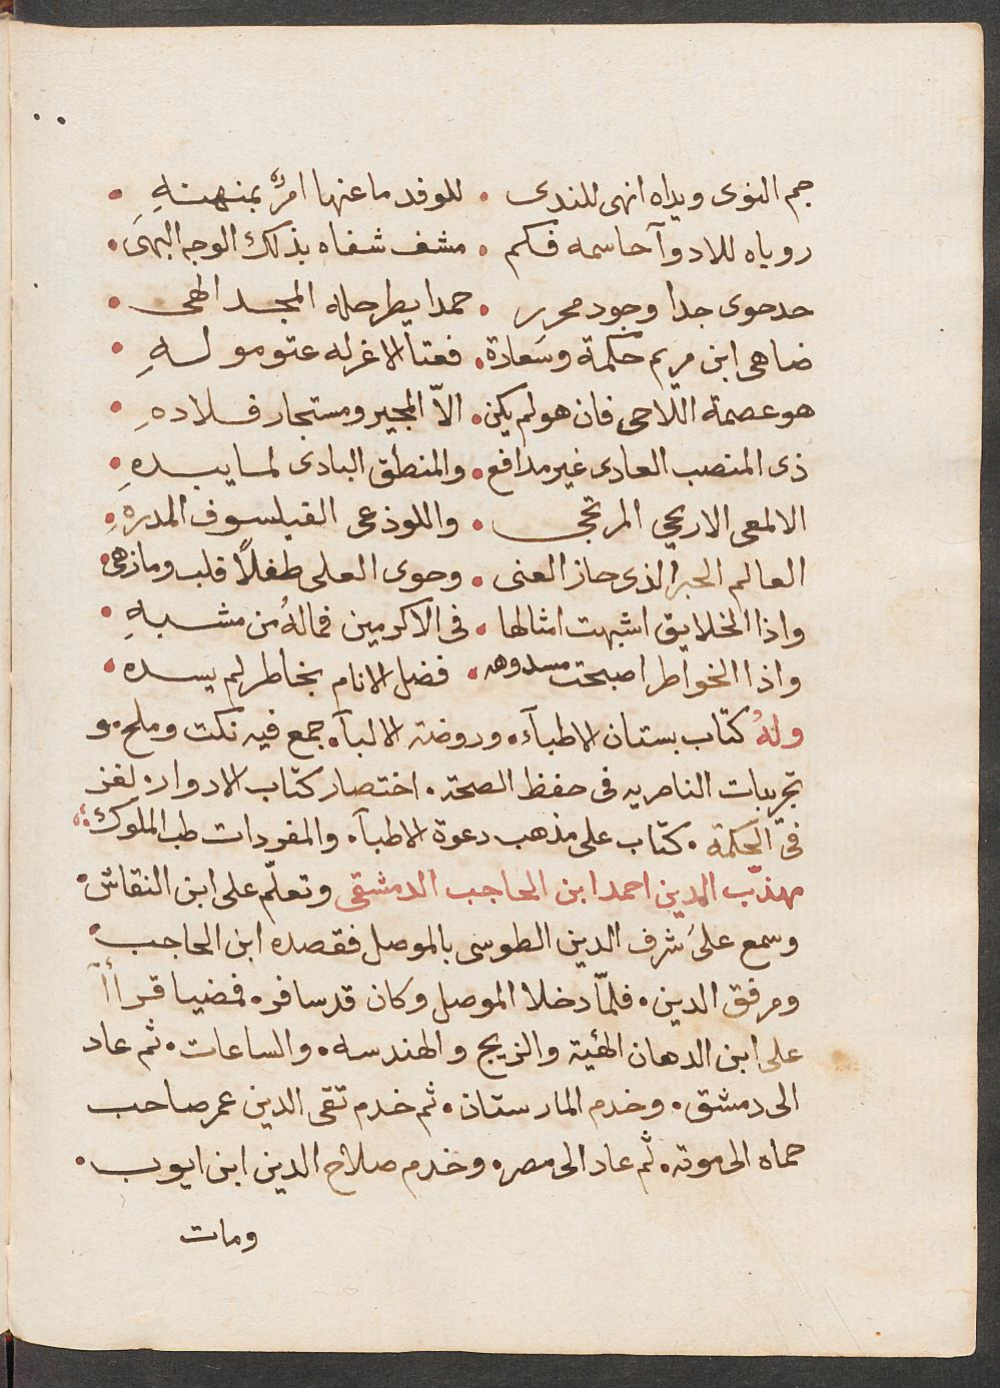 جم النوى ويداه انهى للندى • للوفد ما عنها امرٌّ بمنهنهِ •
روياه للادوآ حاسمه فكم • مشف شفاه بذلك الوجه البهى •
حد حوى جدا وجود محرر • حمدا يطرحله المجد الهى •
ضاهى ابن مريم حكمة وسعادة • فعتا الاغر له عتو مولهِ •
هو عصمة اللاجى فان هو لم يكن • الاّ المجير ومستجار فلادهِ •
ذى المنصب العادى غير مدافع • والمنطق البادى لما يبدهِ •
الالمعى الاريحي المرتجى • واللوذعى الفيلسوف المدرهِ •
العالم الحبر الذى حاز العنى • وحوى العلى طفلاً قلب وما زهى •
واذا الخلايق اشبهت امثالها • فى الاكرمين فما لهُ من مشبهِ •
واذا الخواطر اصبحت مسدوهه • فضل الانام بخاطر لم يسده •
ولهُ كتاب بستان الاطبآء • وروضة الالبآ • جمع فيه نكت وملح • و
تجريبات الناصريه فى حفظ الصحة • اختصار كتاب الادوار • لغز
فى الحكمة • كتاب على مذهب دعوة الاطبآ • والمفردات طب الملوك •
مهذّب الدين احمد ابن الحاجب الدمشقى وتعلّم على ابن النقاش •
وسمع على شرف الدين الطوسى بالموصل فقصده ابن الحاجب •
ومرفق الدين • فلمّا دخلا الموصل وكان قد سافر • فمضيا قرأآ
على ابن الدهان الهئية والزيج والهندسه • والساعات • ثم عاد
الى دمشق • وخدم المارستان • ثم خدم تقى الدين عمر صاحب
حماه الى موته • ثم عاد الى مصر • وخدم صلاح الدين ابن ايوب •
ومات